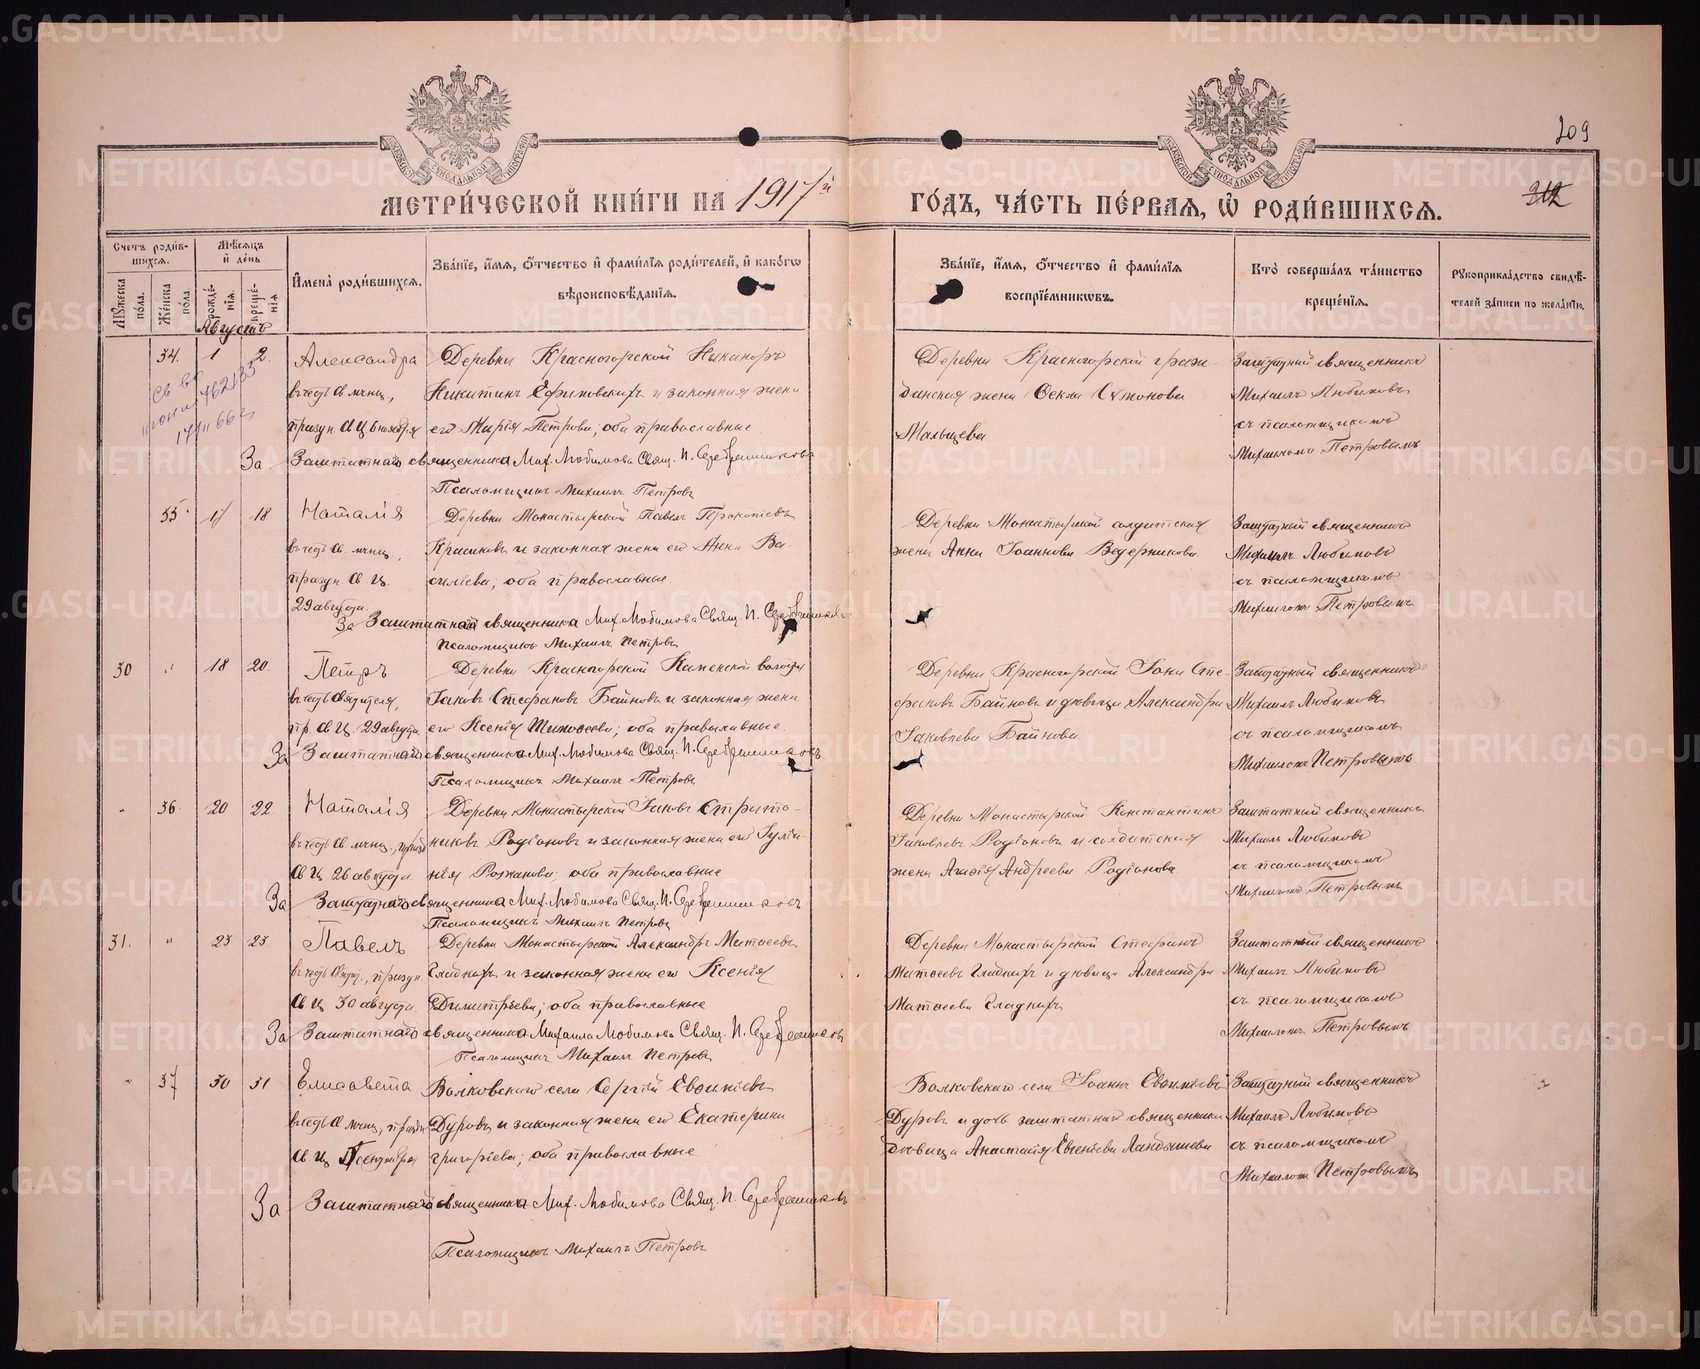 209
212
МЕТРИ́ЧЕСКОЙ КНИ́ГИ НА 1917й ГО́ДЪ, ЧА́СТЬ ПЕ́РВАЯ, Ѡ҆ РОДИ́ВШИХСЯ.
Счетъ роди́вшихся.
Мѣсяцъ и҆ де́нь
Мꙋжеска по́ла.
Же́нска по́ла
рожде́нїя.
креще́нїя
И҆мена̀ роди́вшихся.
Зва́нїе, и҆́мя, ѻ҆́тчество и҆ фами́лїя роди́телей, и҆ како́гѡ вѣроисповѣ́данїя.
Зва́нїе, и҆́мя, ѻ҆́тчество и҆ фами́лїя воспрїе́мниковъ.
Кто̀ соверша́лъ та́инство креще́нїя.
Рꙋкоприкла́дство свидѣ́телей за́писи по жела́нїю.
Августъ
34. 1 2. Александра
Деревни Красногорской Никаноръ
Никитинъ Ефимовскихъ и законная жена
его Марія Петрова, оба православные
Деревни Красногорской граж-
данская жена Ѳекла Симонова
Мальцева
Заштатный священникъ
Михаилъ Любимовъ
съ псаломщикомъ
Михаиломъ Петровымъ
За Заштатнаго священника Мих. Любимова Свящ. П. Серебренниковъ
Псаломщикъ Михаилъ Петровъ
35. 17 18 Наталія
въ честь св. мчиц.,
праздн. св. ц.
29 августа
Деревни Монастырской Павелъ Прокопіевъ
Красиковъ и законная жена его Анна Ва-
силіева, оба православные
Деревни Монастырской солдатская
жена Анна Іоаннова Ведерникова
Заштатный священникъ
Михаилъ Любимовъ
съ псаломщикомъ
Михаиломъ Петровымъ
За Заштатнаго священника Мих. Любимова Свящ. П. Серебренниковъ
Псаломщикъ Михаилъ Петровъ
30 " 18 20. Петръ
въ честь святителя,
пр. св. ц. 29 августа
Деревни Красногорской Каменской волости
Іаковъ Стефановъ Байновъ и законная жена
его Ксенія Тимоѳеева, оба православные.
Деревни Красногорской Іона Сте-
фановъ Байновъ и дѣвица Александра
Іаковлева Байнова
Заштатный священникъ
Михаилъ Любимовъ
съ псаломщикомъ
Михаиломъ Петровымъ
За Заштатнаго священника Мих. Любимова Свящ. П. Серебренниковъ
Псаломщикъ Михаилъ Петровъ
" 36 20 22 Наталія
въ честь св. мчиц.,
св. ц. 26 августа
Деревни Монастырской Іаковъ Страто-
никовъ Родіоновъ и законная жена его Іулiа-
нія Романова, оба православные
Деревни Монастырской Константинъ
Іаковлевъ Родіоновъ и солдатская
жена Агаѳія Андреева Родіонова.
Заштатный священникъ
Михаилъ Любимовъ
съ псаломщикомъ
Михаиломъ Петровымъ
За Заштатнаго священника Мих. Любимова Свящ. П. Серебренниковъ
Псаломщикъ Михаилъ Петровъ
31. " 23 23. Павелъ
св. ц. 30 августа.
Деревни Монастырской Александръ Матѳеевъ
Гладкихъ и законная жена его Ксенія
Димитріева, оба православные
Деревни Монастырской Стефанъ
Матѳеевъ Гладкихъ и дѣвица Александра
Матѳеева Гладкихъ
Заштатный священникъ
Михаилъ Любимовъ
съ псаломщикомъ
Михаиломъ Петровымъ
За Заштатнаго священника Михаила Любимова Свящ. П. Серебренниковъ
Псаломщикъ Михаилъ Петровъ
" 37 30 31 Елисавета
въ честь св. мчиц., праздн.
св. ц. сентября
Волковскаго села Сергій Евѳиміевъ
Дуровъ и законная жена его Екатерина
Григоріева, оба православные
Волковскаго села Іоаннъ Евѳиміевъ
Дуровъ и дочь заштатнаго священника
дѣвица Анастасія Евгеніева Ландышева
Заштатный священникъ
Михаилъ Любимовъ
съ псаломщикомъ
Михаиломъ Петровымъ
За Заштатнаго священника Мих. Любимова Свящ. П. Серебренниковъ
Псаломщикъ Михаилъ Петровъ
METRIKI.GASO-URAL.RU